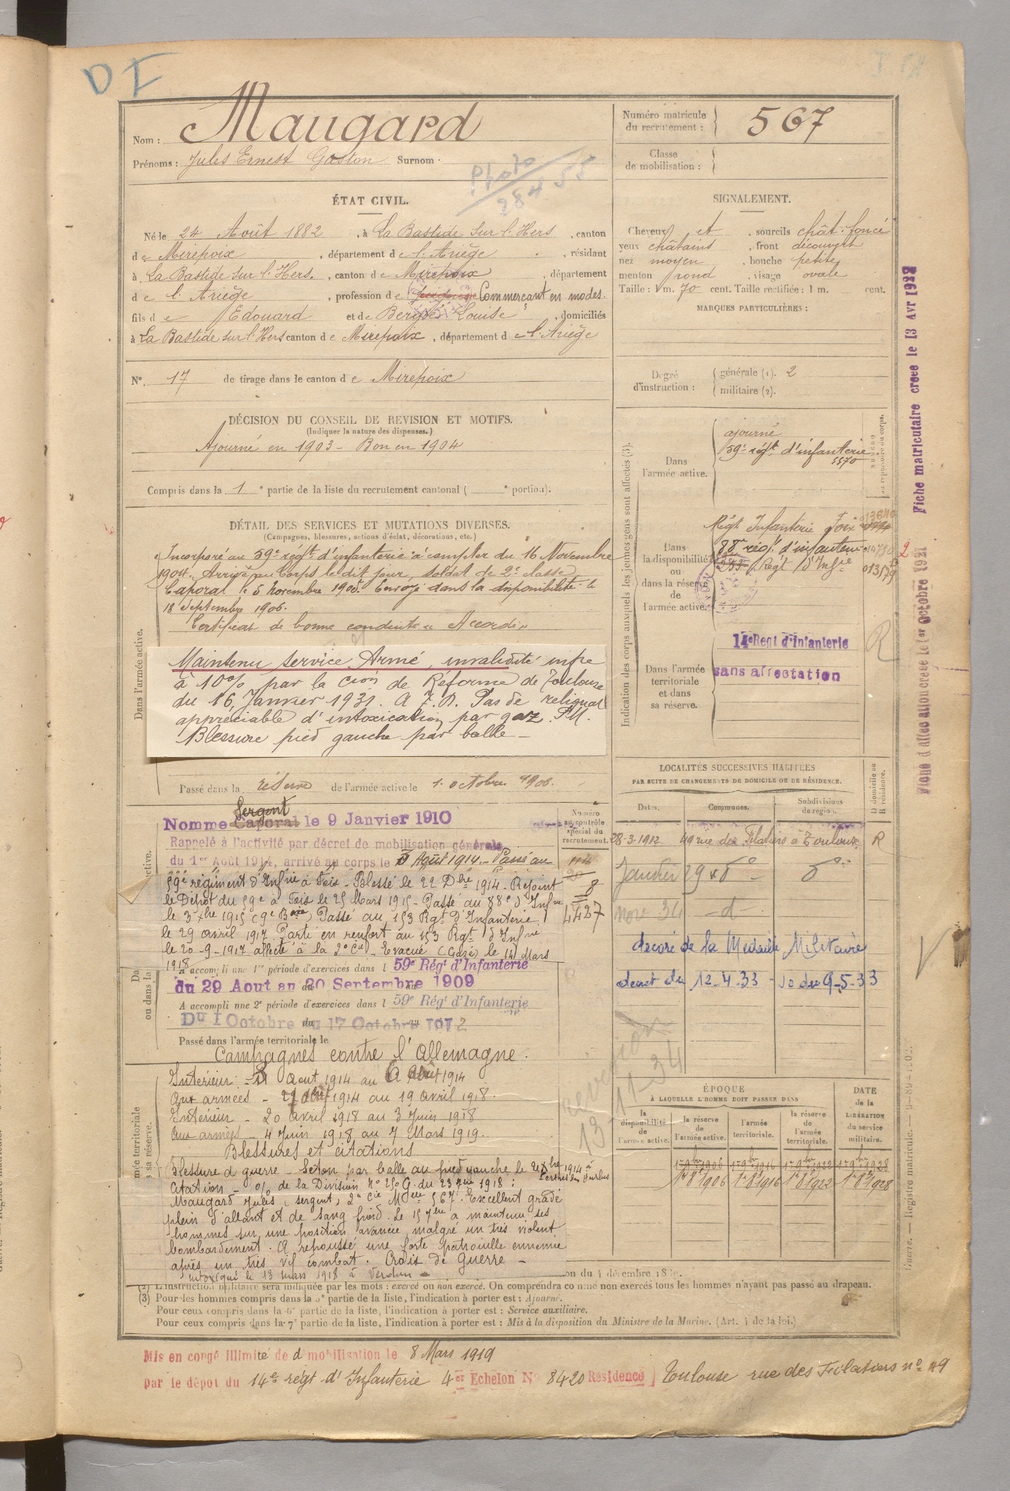 DI
Nom : Maugard
Prénoms : Jules Ernest Gaston Surnom :
Photo
28455
Numéro matricule
du recrutement : 567
Classe
de mobilisation :
ÉTAT CIVIL.
Né le 24 Août 1882, à La Bastide Sur l'Hers, canton
de Mirepoix, département de l'Ariège, résidant
à La Bastide Sur l'Hers, canton de Mirepoix, département
de l'Ariège, profession de Commerçant en modes
fils de Edouard et de Louise, domiciliés
à La Bastide sur l'Hers canton de Mirepoix, département de l'Ariège
N° 17 de tirage dans le canton de Mirepoix
SIGNALEMENT.
Cheveux et sourcils chât. foncé
yeux châtains, front découvert
nez moyen, bouche petite
menton rond, visage ovale
Taille : 1 m. 70 cent. Taille rectifiée : 1 m. cent.
MARQUES PARTICULIÈRES :
Degré
d'instruction :
générale (1). 2
militaire (2).
DÉCISION DU CONSEIL DE REVISION ET MOTIFS.
(Indiquer la nature des dispenses.)
Ajourné en 1903 - Bon en 1904
Compris dans la 1e partie de la liste du recrutement cantonal ( e portion).
DÉTAIL DES SERVICES ET MUTATIONS DIVERSES.
(Campagnes, blessures, actions d'éclat, décorations, etc.)
Dans l'armée active.
Incorporé au 59e régt d'infanterie à compter du 16 Novembre
1904. Arrivé au corps le dit jour, soldat de 2e classe
Caporal le 5 novembre 1905. Envoyé dans la disponibilité le
18 Septembre 1906.
Certificat de bonne conduite « Accordé »
Maintenu service Armé, invalidité infre
à 10% par la Con de Réforme de Toulouse
du 16 Janvier 1931. Pas de reliquat
appréciable d'intoxication par gaz.
Blessure pied gauche par balle -
Passé dans la réserve de l'armée active le 1 octobre 1906.
Indication des corps auxquels les jeunes gens sont affectés (3).
Dans
l'armée active.
ajourné
59e régt d'infanterie
5570
Dans
la disponibilité
ou
dans la réserve
de
l'armée active.
Régt Infanterie Foix
88e régt d'infanterie
Dans l'armée
territoriale
et dans
sa réserve.
14e Regt d'Infanterie
sans affectation
R
Fiche matriculaire creee le 13 Avr 1922
Fiche d'affectation creee le 1er Octobre 1921
Sergent
Nomme Caporal le 9 Janvier 1910
Rappelé à l'activité par décret de mobilisation générale
du 1er Août 1914, arrivé au corps le 3 Août 1914. Passé au
59e régiment d'Infrie à Foix - Blessé le 22 Dbre 1914 - Rejoint
le Dépôt du 59e à Foix le 25 Mars 1915 - Passé au 88e d'Infrie
le 3 7bre 1915 (9e Bon) Passé au 153 Rgt d'Infanterie
le 29 avril 1917 Parti en renfort au 153 Rgt d'Infrie
le 20-9-1917 affecté à la 2e Cie - Evacué (Gazé) le 14 Mars
1918
A accompli une 1re période d'exercices dans l 59e Régt d'Infanterie
du 29 Aout au 20 Septembre 1909
A accompli une 2e période d'exercices dans l 59e Rég. d'Infanterie
Du 1 Octobre au 17 Octobre 1912
Passé dans l'armée territoriale le
Numéro
au contrôle
spécial du
recrutement.
4437
LOCALITÉS SUCCESSIVES HABITÉES
PAR SUITE DE CHANGEMENTS DE DOMICILE OU DE RÉSIDENCE.
Dates.
Communes.
Subdivisions
de région.
D domicile ou
R résidence.
28-3-1912 49 rue des Filatiers à Toulouse R
Janvier 29 x do - do
nov 30 - d -
décoré de la Médaille Militaire
décret du 12-4-33 - Jo du 9-5-33
revision
13-11-34
Campagnes contre l'Allemagne.
Interieur - 3 Aout 1914 au 6 Aout 1914
Aux armées - 7 Aout 1914 au 19 avril 1918.
Interieur - 20 avril 1918 au 3 Juin 1918
aux armées - 4 Juin 1918 au 7 Mars 1919.
Blessures et citations
Blessure de guerre - Séton par balle au pied gauche le 22 Xbre 1914 à
Perthes les Hurlus
Citation - O/ de la Division No 250 G. du 23 mai 1918 :
Maugard Jules, sergent, 2e Cie Mle 567. Excellent gradé
plein d'allant et de sang froid. Le 15 7bre a maintenu ses
hommes sur une position avancée malgré un très violent
bombardement. A repoussé une forte patrouille ennemie
après un très vif combat. Croix de Guerre -
Intoxiqué le 13 mars 1918 à Verdun -
ÉPOQUE
À LAQUELLE L'HOMME DOIT PASSER DANS
DATE
de la
LIBÉRATION
du service
militaire.
la
disponibilité
de
l'armée active.
la réserve
de
l'armée active.
l'armée
territoriale.
la réserve
de
l'armée
territoriale.
1er 8bre 1906 1er 8bre 1916 1er 8bre 1922 1er 8bre 1928
on du 4 décembre 18
(2) L'instruction militaire sera indiquée par les mots : exercé ou non exercé. On comprendra comme non exercés tous les hommes n'ayant pas passé au drapeau.
(3) Pour les hommes compris dans la 5e partie de la liste, l'indication à porter est : Ajourné.
Pour ceux compris dans la 6e partie de la liste, l'indication à porter est : Service auxiliaire.
Pour ceux compris dans la 7e partie de la liste, l'indication à porter est : Mis à la disposition du Ministre de la Marine. (Art. 4 de la loi.)
Mis en congé illimité de démobilisation le 8 Mars 1919
par le dépôt du 14e régt d'Infanterie 4er Echelon No 8420 Résidence Toulouse rue des Filatiers no 49